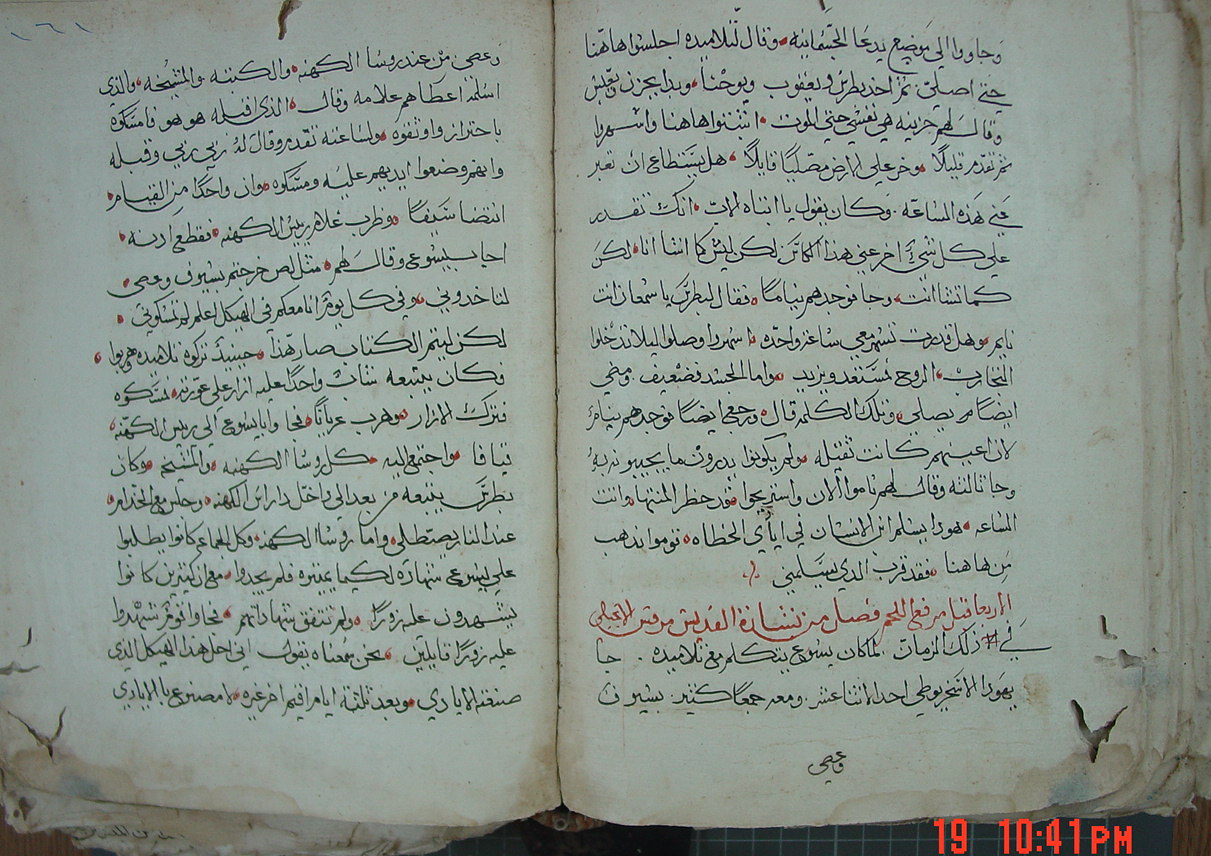 وجاووا الي موضع يدعا الجتسمانيه وقال لتلاميذه اجلسوا هاهنا
حتي اصلي ثم اخد بطرس ويعقوب ويوحنا وبدا يحزن ويعبس
وقال لهم حزينه هي نفسي حتي الموت اثبتوا هاهنا واسهروا
ثم تقدم قليلا وخر علي الارض مصليا قايلا هل يستطاع ان تعبر
عني هذه الساعه وكان يقول يا ابتاه الاب انك تقدر
علي كل شي اخر عني هذا الكاس لكن ليس كما اشا انا لكن
كما تشا انت وجا فوجدهم نياما فقال لبطرس يا سمعان انت
نايم وهل قدرت تسهر معي ساعه واحده اسهروا وصلوا ليلا تدخلوا
التجارب الروح مستعد ويريد واما الجسد فضعيف ومضي
ايضا يصلي وتلك الكلمه قال ورجع ايضا فوجدهم نيام
لان اعينهم كانت ثقيله ولم يكونوا يدرون ما يجيبونه به
وجا ثالثه وقال لهم ناموا الان واستريحوا فقد حظر المنتها واتت
الساعه هودا يسلم ابن الانسان في ايادي الخطاه قوموا نذهب
من هاهنا فقد قرب الدي يسلمني
الاربعا قبل مرفع اللحم فصل من بشارة القديس مرقس الانجيلي
في ذلك الزمان لما كان يسوع يتكلم مع تلاميذه جا
يهودا الاسخريوطي احد الاثنا عشر ومعه جمعا كثير بسيوف
وعصي
١٦١
وعصي من عند روسا الكهنه والكتبه والمشيخه والذي
اسلمه اعطاهم علامه وقال الذي اقبله هو هو فامسكوه
باحتراز واوثقوه ولساعته تقدم وقال له ربي ربي وقبله
وانهم وضعوا ايديهم عليه ومسكوه وان واحدا من القيام
انتضا سيفا وظرب غلام رييس الكهنه فقطع ادنه
اجاب يسوع وقال لهم مثل لص خرجتم بسيوف وعصي
لتاخدوني وفي كل يوم انا معكم في الهيكل اعلم لم تمسكوني
لكن ليتم الكتاب صار هذا حينيذ تركوه تلاميذه وهربوا
وكان يتبعه شاب واحدا عليه ازار علي عورته فمسكوه
فترك الازار وهرب عريانا فجاوا بايسوع الي رييس الكهنه
قيافا واجتمع اليه كل روسا الكهنه والمشيخ وكان
بطرس يتبعه من بعد الي داخل دار رايس الكهنه وجلس مع الخدام
عند النار يصطلي واما روسا الكهنه وكل الجماعه كانوا يطلبوا
علي ليسوع شهاده لكيما يميتوه فلم يجدوا مع ان كثيرين كانوا
يشهدون عليه زورا ولم تتفق شهاداتهم فجاوا قوم شهدوا
عليه زورا قايلين نحن سمعناه يقول اني احل هذا الهيكل الذي
صنعته الايادي وبعد تلتة ايام اقيم اخر غيره لا مصنوع بالايادي